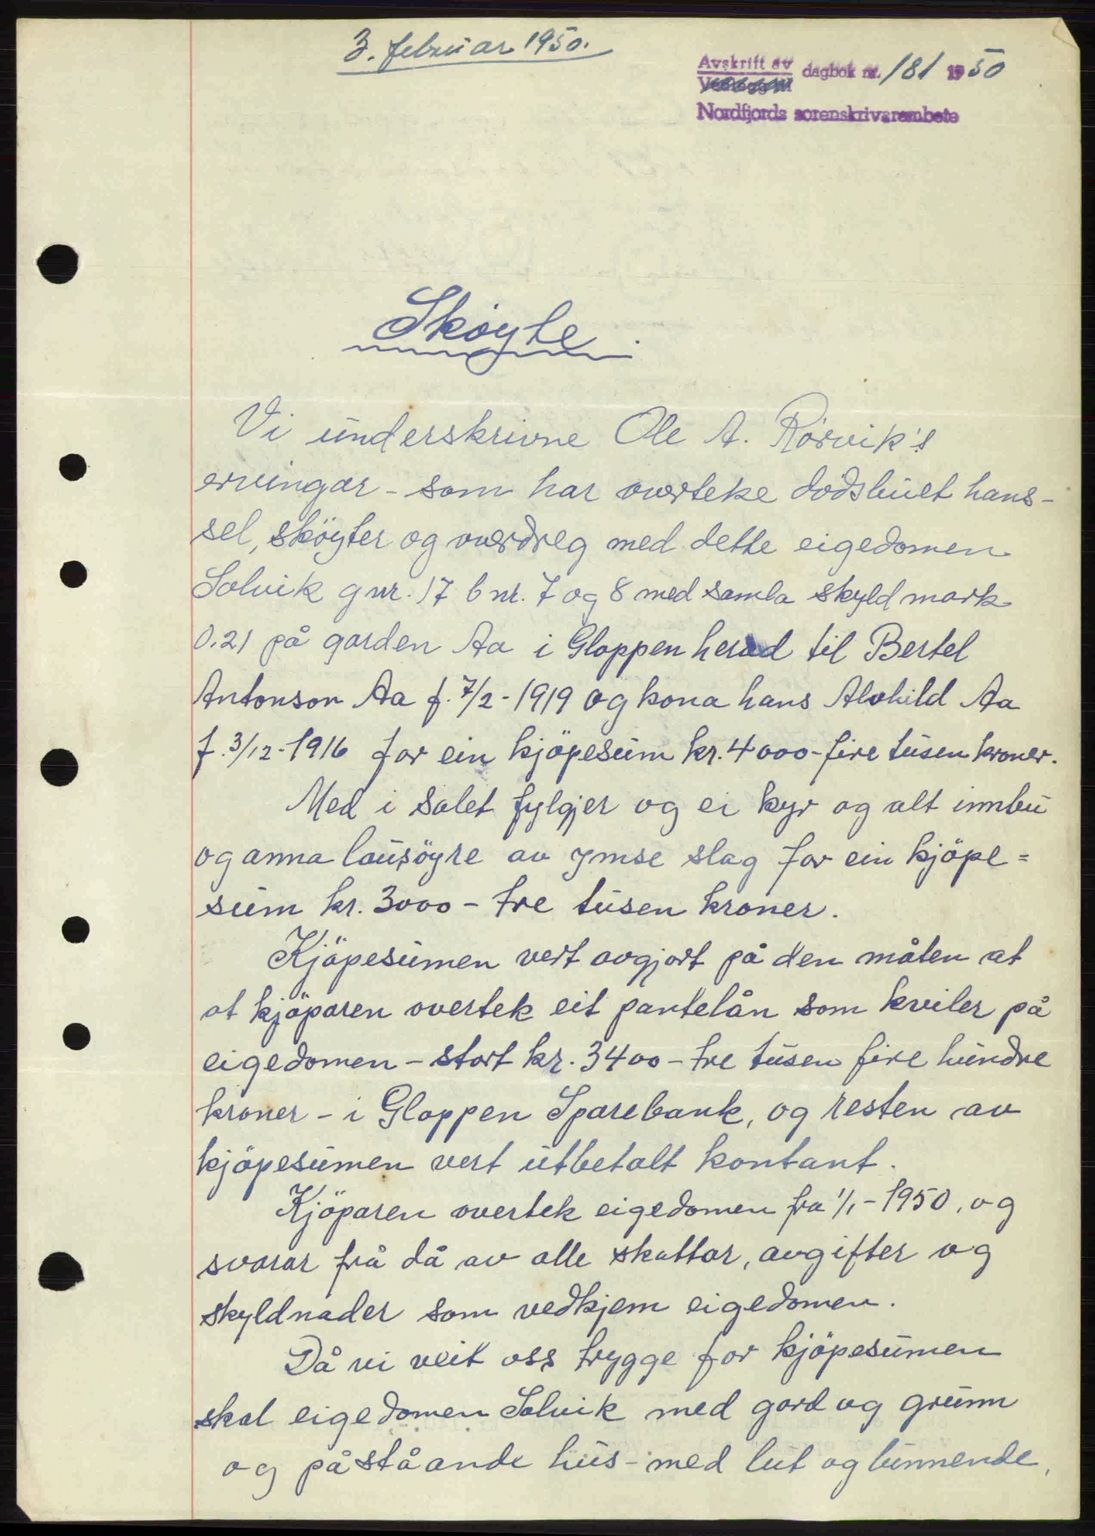 3. februar 1950.
Avskrift av dagbok nr. 181 1950
Nordfjords sorenskrivarembete
Skøyte.
Vi underskrivne Ole A. Rørvik's
ervingar - som har overteke dødsbuet hans -
sel, skøyter og overdreg med dette eigedomen
Solvik gnr. 17 bnr. 7 og 8 med samla skyld mark
0.21 på garden Aa i Gloppen herad til Bertel
Antonson Aa f. 7/2 - 1919 og kona hans Alvhild Aa
f. 3/12 - 1916 for ein kjöpesum kr. 4000 - fire tusen kroner.
Med i salet fylgjer og ei kyr og alt innbu
og anna lausöyre av ymse slag for ein kjöpe=
sum kr. 3000 - tre tusen kroner.
Kjöpesumen vert avgjort på den måten at
at kjöparen overtek eit pantelån som kviler på
eigedomen - stort kr. 3400 - tre tusen fire hundre
kroner - i Gloppen Sparebank, og resten av
kjöpesumen vert utbetalt kontant.
Kjöparen overtek eigedomen fra 1/1 - 1950, og
svarar frå då av alle skattar, avgifter og
skyldnader som vedkjem eigedomen.
Då vi veit oss trygge for kjöpesumen
skal eigedomen Solvik med gard og grunn
og påståande hus - med lut og lunnende,